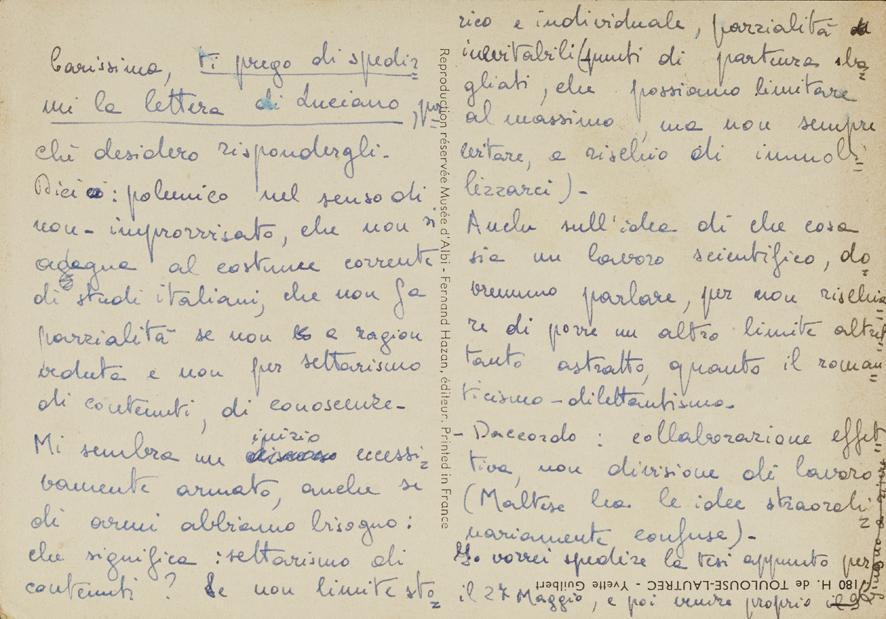 Carissimo, ti prego di spedir=
mi la lettera di Luciano, per=
chè desidero rispondergli.
Dici : polemico nel senso di
non-improvvisato, che non si
adegua al costume corrente
di studi italiani, che non fa
parzialità se non a ragion
veduta e non per settarismo
di contenuti, di conoscenze.
Mi sembra un inizio eccessi=
vamente armato, anche se
di armi abbiamo bisogno:
che significa : settarismo di
contenuti? Se non limite sto=
rico e individuale, parzialità
inevitabili (punti di partenza sba=
gliati, che possiamo limitare
al massimo, ma non sempre
evitare, a rischio di immobi=
lizzarci).
Anche sull'idea di che cosa
sia un lavoro scientifico, do=
vremmo parlare, per non rischia=
re di porre un altro limite altret=
tanto astratto, quanto il roman=
ticismo-dilettantismo.
- Daccordo : collaborazione effet=
tiva, non divisione di lavoro
(Maltese ha le idee straordi=
nariamente confuse).
Io vorrei spedire la tesi appunto per
il 27 Maggio, e poi venire proprio il
Giugno a
Reproduction réservée Musée d'Albi - Fernand Hazan, éditeur. Printed in France
180 H. de TOULOUSE-LAUTREC - Yvette Guilbert